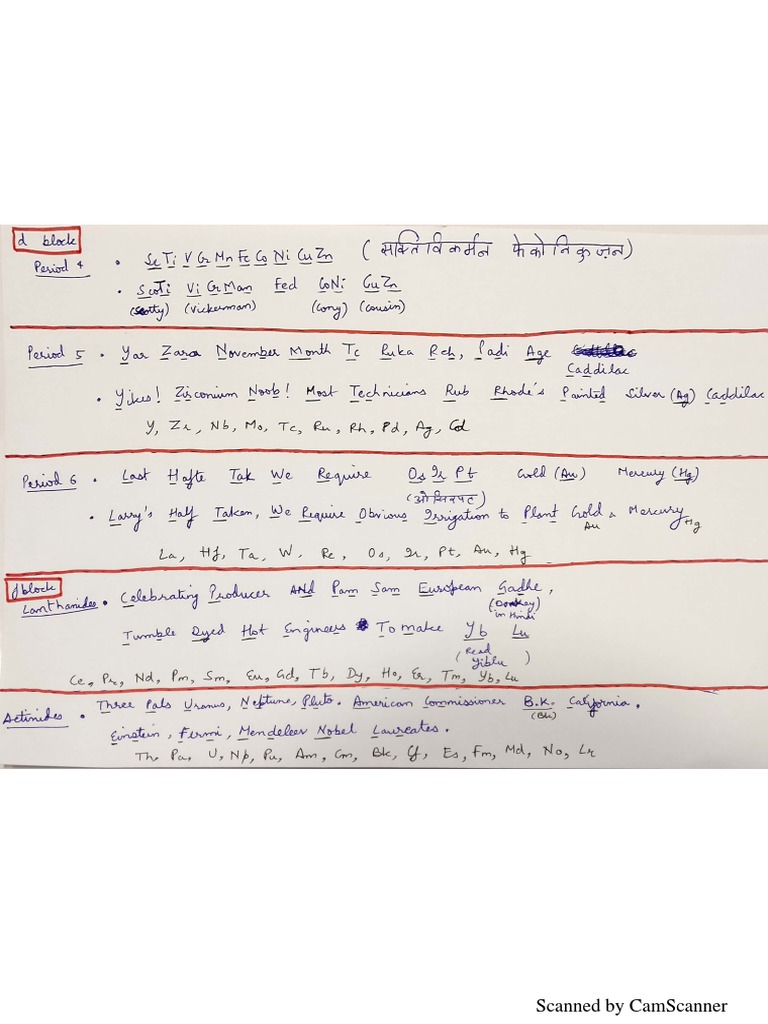 d block
Period 4 • Sc Ti V Cr Mn Fe Co Ni Cu Zn (सक्तिविकर्मन फेकोनिकुज़न)
• ScoTi Vi CrMan Fed CoNi CuZn
(Scotty) (Vickerman) (Cony) (cousin)
Period 5 • Yar Zara November Month Tc Ruka Rch, Padi Age
Caddilac
• Yikes! Zirconium Noob! Most Technicians Rub Rhode's Painted Silver (Ag) Caddilac
Y, Zr, Nb, Mo, Tc, Ru, Rh, Pd, Ag, Cd
Period 6 • Last Hafte Tak We Require Os Ir Pt Gold (Au) Mercury (Hg)
(ओसिरपट)
• Larry's Half Taken, We Require Obvious Irrigation to Plant Gold & Mercury
Au Hg
La, Hf, Ta, W, Re, Os, Ir, Pt, Au, Hg
f block
Lanthanides • Celebrating Producer AND Pam Sam European Gadhe,
(Donkey)
in Hindi
Tumble Dyed Hot Engineers To make Yb Lu
(Read
Yiblu)
Ce, Pr, Nd, Pm, Sm, Eu, Gd, Tb, Dy, Ho, Er, Tm, Yb, Lu
Actinides • Three Pals Uranus, Neptune, Pluto. American Commissioner B.K. California.
(Bk)
Einstein, Fermi, Mendeleev Nobel Laureates.
Th, Pa, U, Np, Pu, Am, Cm, Bk, Cf, Es, Fm, Md, No, Lr
Scanned by CamScanner